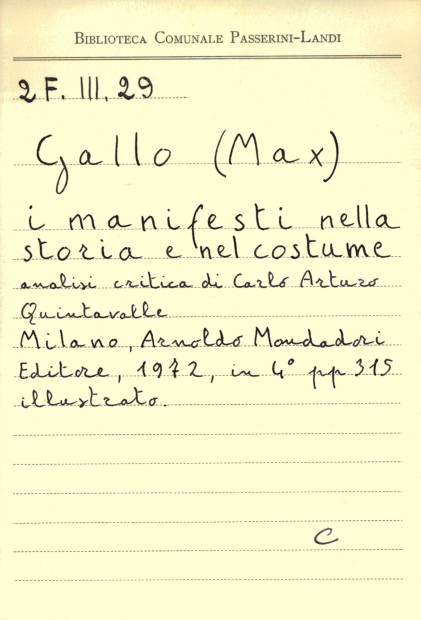 BIBLIOTECA COMUNALE PASSERINI-LANDI
2 F. III. 29
Gallo (Max)
i manifesti nella
storia e nel costume
analisi critica di Carlo Arturo
Quintavalle
Milano, Arnoldo Mondadori
Editore, 1972, in 4° pp 315
illustrato.
C